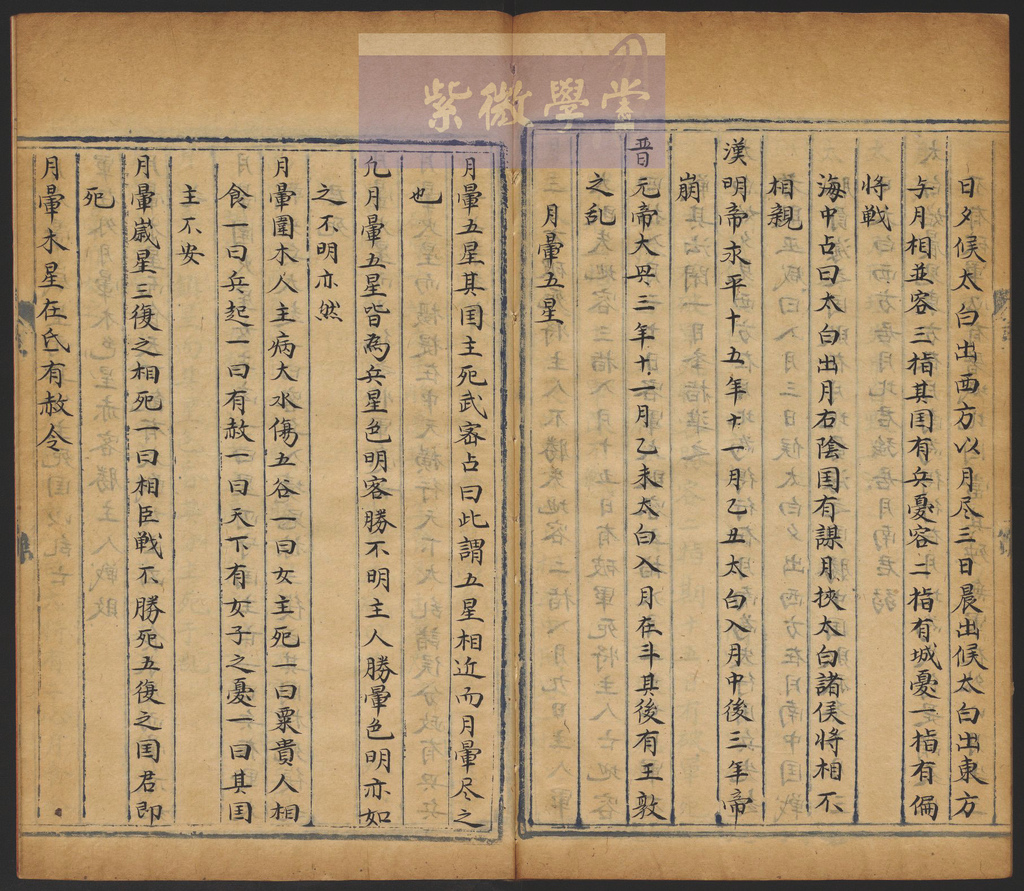 紫微學堂
日夕候太白出西方以月尽三日晨出候太白出東方
与月相並容三指其国有兵憂容二指有城憂一指有偏
将戦
海中占曰太白出月右陰国有謀月挾太白諸侯将相不
相親
漢明帝永平十五年十一月乙丑太白入月中後三年帝
崩
晋元帝大興三年十二月乙未太白入月在斗其後有王敦
之乱
月暈五星
月暈五星其国主死武宻占曰此謂五星相近而月暈尽之
也
凢月暈五星皆為兵星色明客勝不明主人勝暈色明亦如
之不明亦然
月暈圍木人主病大水傷五谷一曰女主死一曰粟貴人相
食一曰兵起一曰有赦一曰天下有女子之憂一曰其国
主不安
月暈歲星三復之相死一曰相臣戦不勝死五復之国君即
死
月暈木星在氐有赦令